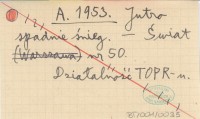 A. 1953. Jutro
spadnie śnieg. — Świat
(Warszawa) nr 50.
Działalność TOPR-u.